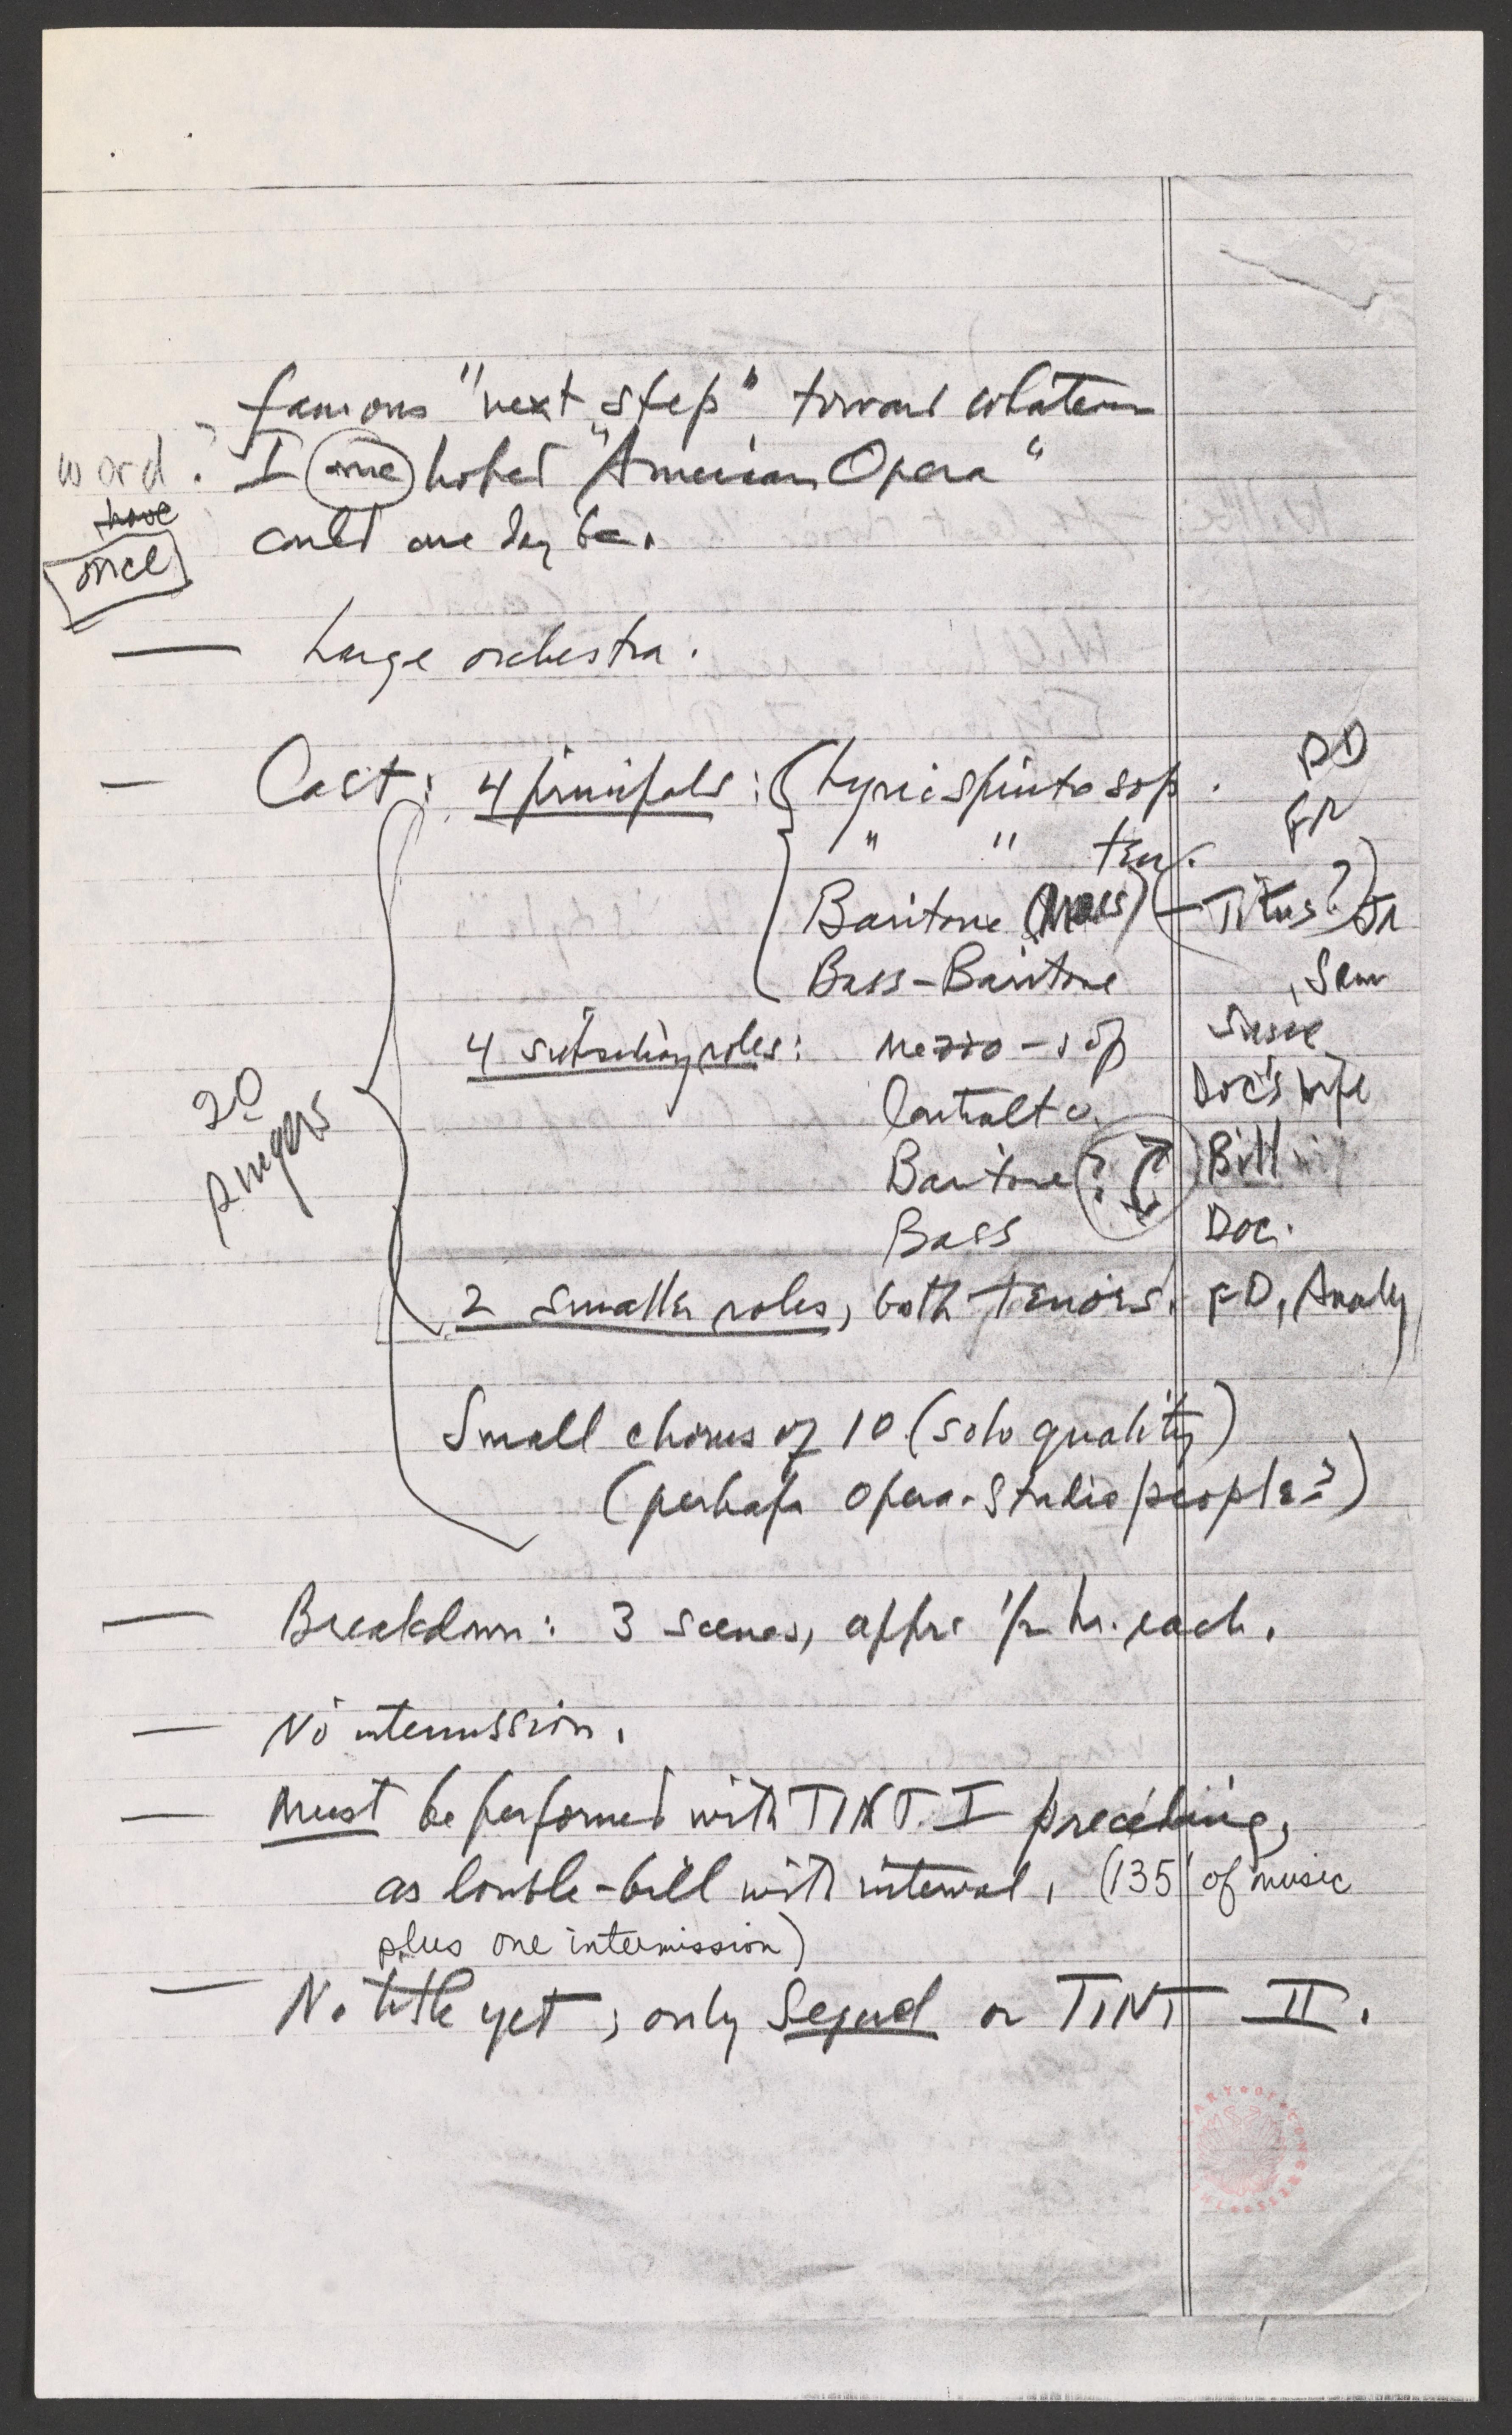 famous "next step" toward whatever
word? I once hoped "American Opera"
have
once
could one day be.
— Large orchestra.
— Cast: 4 principals: Lyric spinto sop. DD
" " ten. FR
Baritone (Titus?) Jr
Bass-Baritone, Sam
4 subsidiary roles: mezzo-sop Susie
Contralto Doc's wife
Baritone ? Bill
Bass Doc.
20 singers
2 smaller roles, both tenors. FD, Analy
Small chorus of 10 (solo quality)
(perhaps Opera-Studio people?)
— Breakdown: 3 scenes, appr. 1/2 hr. each.
— No intermission.
— Must be performed with TINT. I preceding,
as double-bill with interval. (135' of music
plus one intermission)
— No title yet; only Sequel or TINT II.